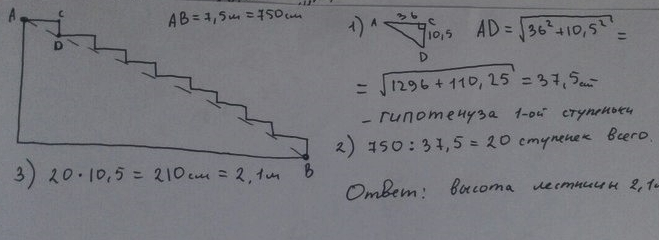 A C D B
AB = 7,5м = 750 см
1) A 36 C 10,5 D AD = √36² + 10,5² =
= √1296 + 110,25 = 37,5 см
- гипотенуза 1-ой ступеньки
2) 750 : 37,5 = 20 ступенек всего.
3) 20 · 10,5 = 210 см = 2,1 м
Ответ: высота лестницы 2,1м